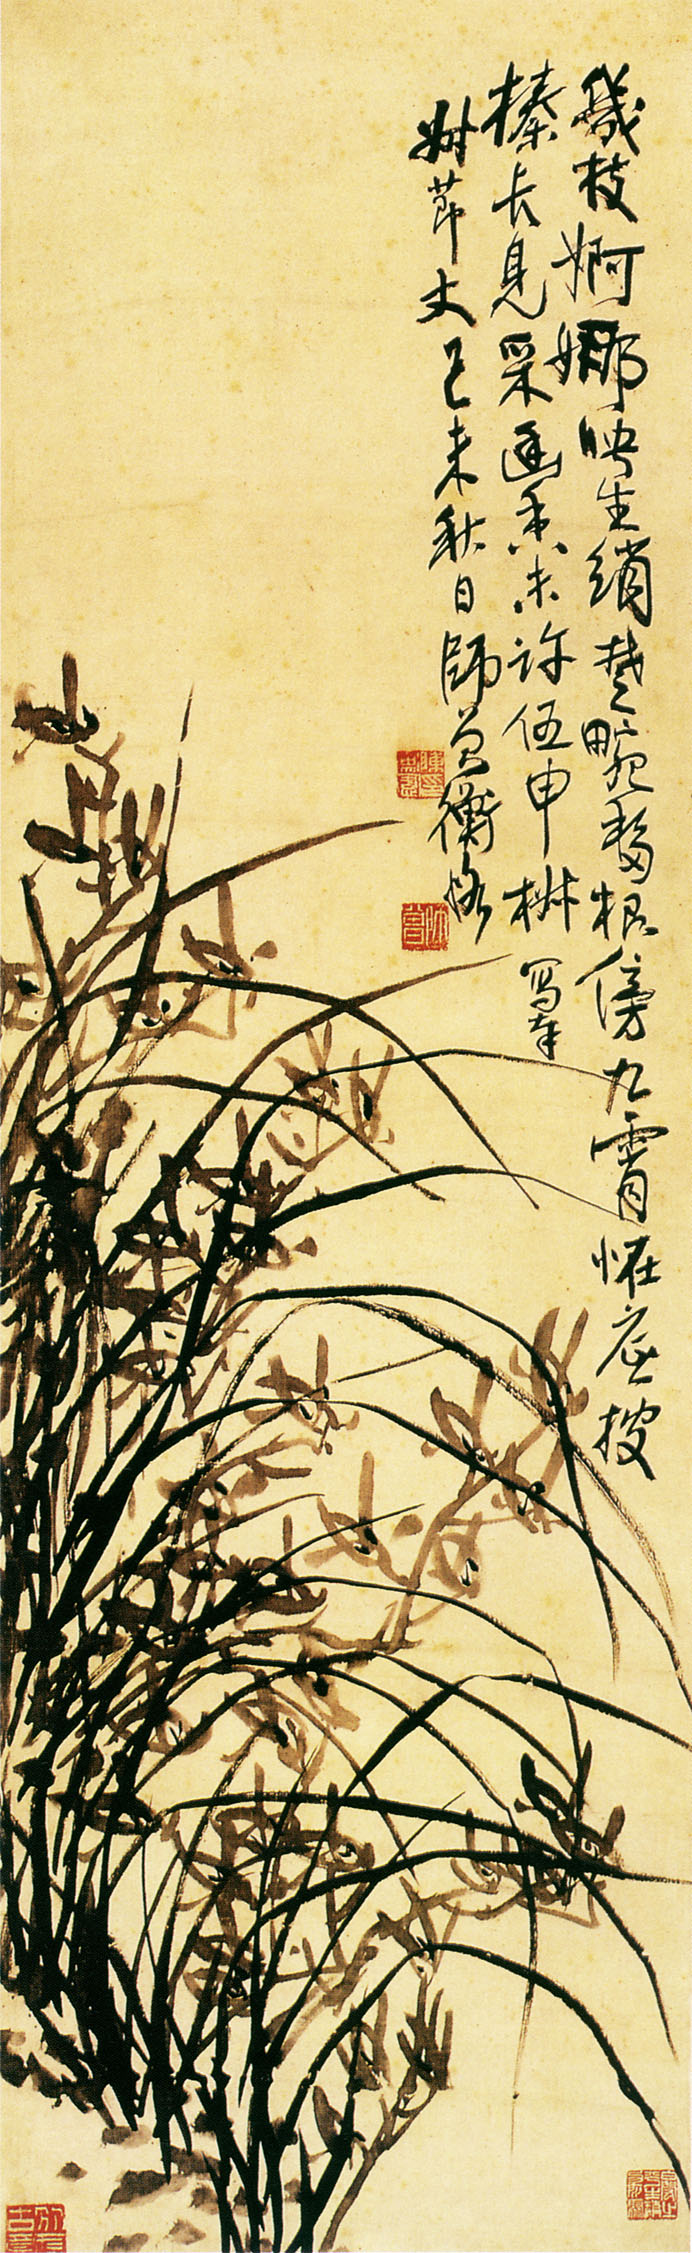 幾枝婀娜映生綃楚畹移根傍九霄恠底披
榛長見采幽香未許伍申椒 寫奉
丈己未秋日師曾衡恪